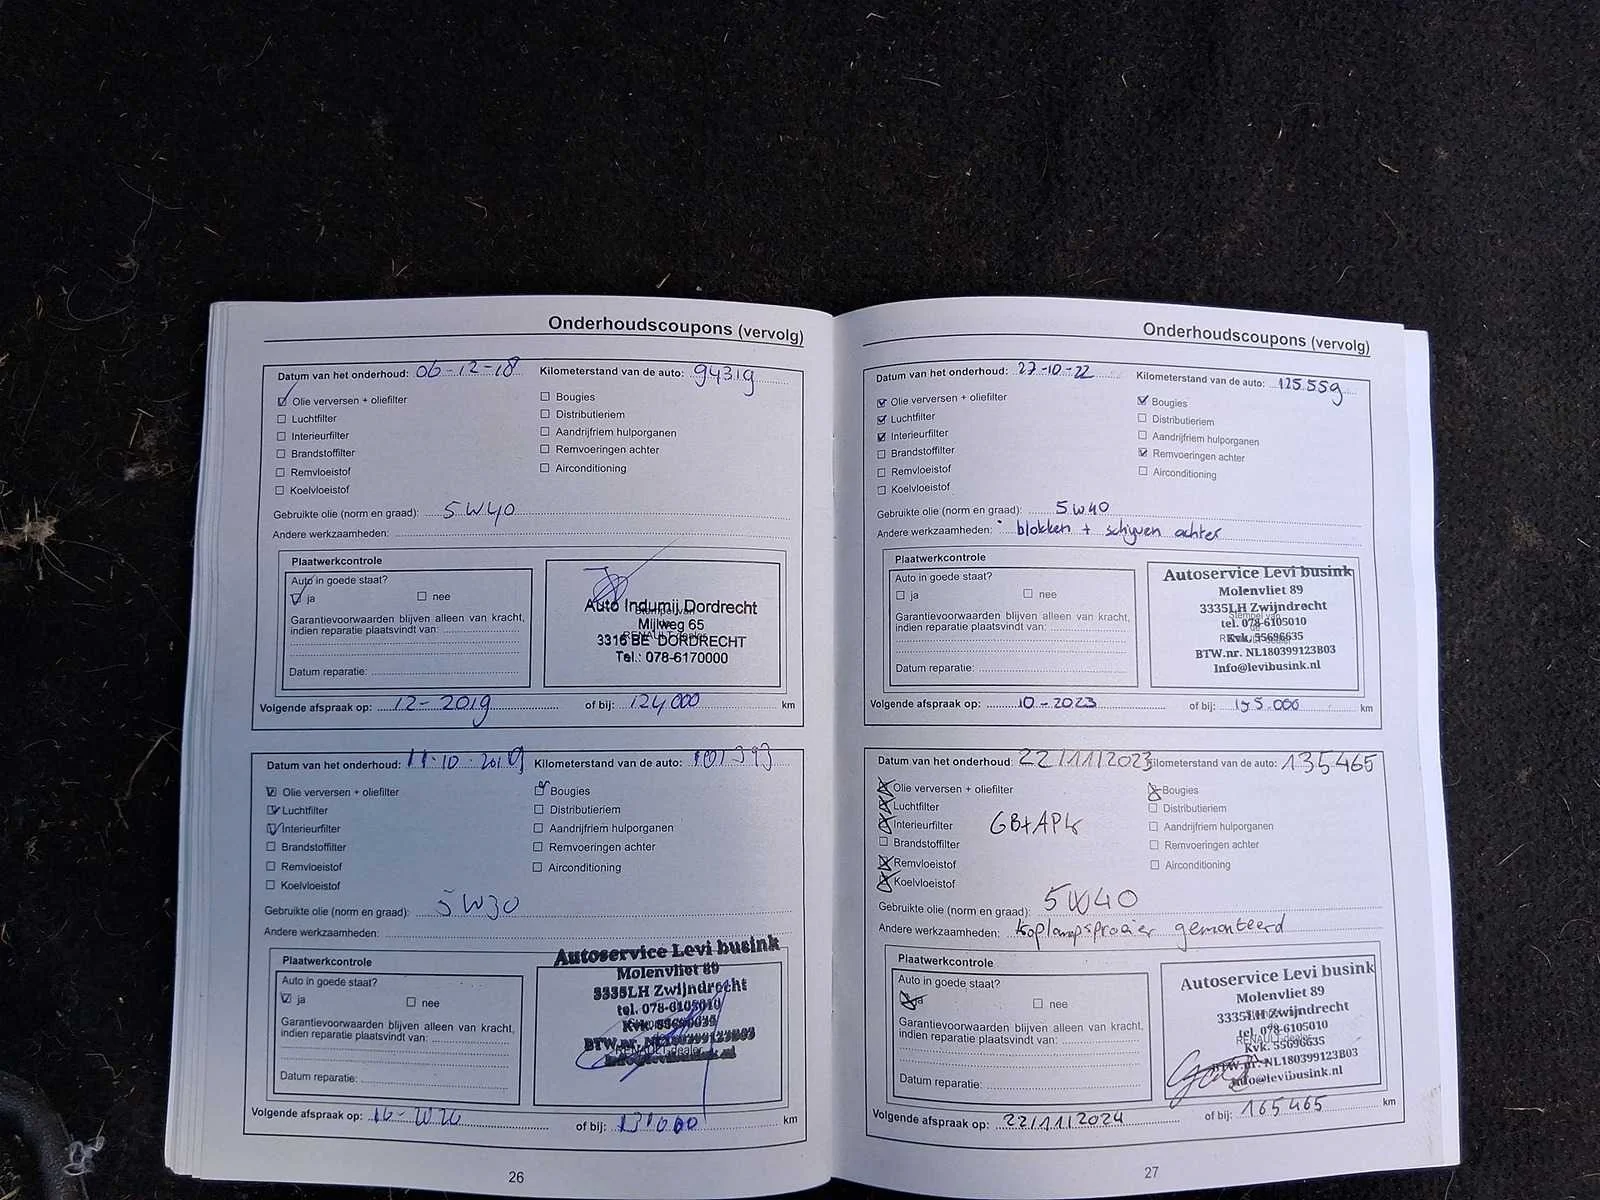 Onderhoudscoupons (vervolg)
Datum van het onderhoud: 06-12-18 Kilometerstand van de auto: 94319
Olie verversen + oliefilter
Luchtfilter
Interieurfilter
Brandstoffilter
Remvloeistof
Koelvloeistof
Bougies
Distributieriem
Aandrijfriem hulporganen
Remvoeringen achter
Airconditioning
Gebruikte olie (norm en graad): 5W40
Andere werkzaamheden:
Plaatwerkcontrole
Auto in goede staat?
ja nee
Garantievoorwaarden blijven alleen van kracht,
indien reparatie plaatsvindt van:
Datum reparatie:
Auto Indumij Dordrecht
Mijlweg 65
3316 BE DORDRECHT
Tel.: 078-6170000
Volgende afspraak op: 12-2019 of bij: 124000 km
Datum van het onderhoud: 11-10-2019 Kilometerstand van de auto: 101393
Olie verversen + oliefilter
Luchtfilter
Interieurfilter
Brandstoffilter
Remvloeistof
Koelvloeistof
Bougies
Distributieriem
Aandrijfriem hulporganen
Remvoeringen achter
Airconditioning
Gebruikte olie (norm en graad): 5W30
Andere werkzaamheden:
Plaatwerkcontrole
Auto in goede staat?
ja nee
Garantievoorwaarden blijven alleen van kracht,
indien reparatie plaatsvindt van:
Datum reparatie:
Autoservice Levi busink
Molenvliet 89
3335LH Zwijndrecht
tel. 078-6105010
Kvk. 55696635
BTW.nr. NL180399123B03
Info@levibusink.nl
Volgende afspraak op: 10-2020 of bij: 131000 km
26
Onderhoudscoupons (vervolg)
Datum van het onderhoud: 27-10-22 Kilometerstand van de auto: 125.559
Olie verversen + oliefilter
Luchtfilter
Interieurfilter
Brandstoffilter
Remvloeistof
Koelvloeistof
Bougies
Distributieriem
Aandrijfriem hulporganen
Remvoeringen achter
Airconditioning
Gebruikte olie (norm en graad): 5W40
Andere werkzaamheden: blokken + schijven achter
Plaatwerkcontrole
Auto in goede staat?
ja nee
Garantievoorwaarden blijven alleen van kracht,
indien reparatie plaatsvindt van:
Datum reparatie:
Autoservice Levi busink
Molenvliet 89
3335LH Zwijndrecht
tel. 078-6105010
Kvk. 55696635
BTW.nr. NL180399123B03
Info@levibusink.nl
Volgende afspraak op: 10-2023 of bij: km
Datum van het onderhoud: 22/11/2023 Kilometerstand van de auto: 135465
Olie verversen + oliefilter
Luchtfilter
Interieurfilter
Brandstoffilter
Remvloeistof
Koelvloeistof
GB+APK
Bougies
Distributieriem
Aandrijfriem hulporganen
Remvoeringen achter
Airconditioning
Gebruikte olie (norm en graad): 5W40
Andere werkzaamheden: Koplampsproeier gemonteerd
Plaatwerkcontrole
Auto in goede staat?
ja nee
Garantievoorwaarden blijven alleen van kracht,
indien reparatie plaatsvindt van:
Datum reparatie:
Autoservice Levi busink
Molenvliet 89
3335LH Zwijndrecht
tel. 078-6105010
Kvk. 55696635
BTW.nr. NL180399123B03
Info@levibusink.nl
Volgende afspraak op: 22/11/2024 of bij: 165465 km
27